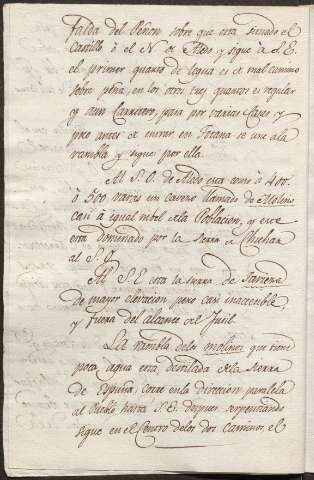 falda del Peñon sobre que esta situado el
Castillo ô el N. de Aledo y sigue â el S.E.
el primer quarto de legua es de mal camino
sobre peña, en los otros tres quartos es regular
y aun Carretero, pasa por varias Casas y
poco antes de entrar en Totana se une ala
rambla y sigue por ella.
Al S.O. de Aledo esta como â 400.
ô 500 varas un caveso llamado de Molino
casi â igual nibel dela Poblacion, y este
esta dominado por la sierra de Chichar
al S.O.
Al S.E. esta la sierra de
de mayor elevacion pero casi inaccesible,
y fuera del alcance del Fusil.
La rambla delos molinos que tiene
poca agua esta, destilada dela sierra
de España, corre enla direccion paralela
al Pueblo hasta S.E. despues serpenteando
sigue en el Centro delos dos caminos, el